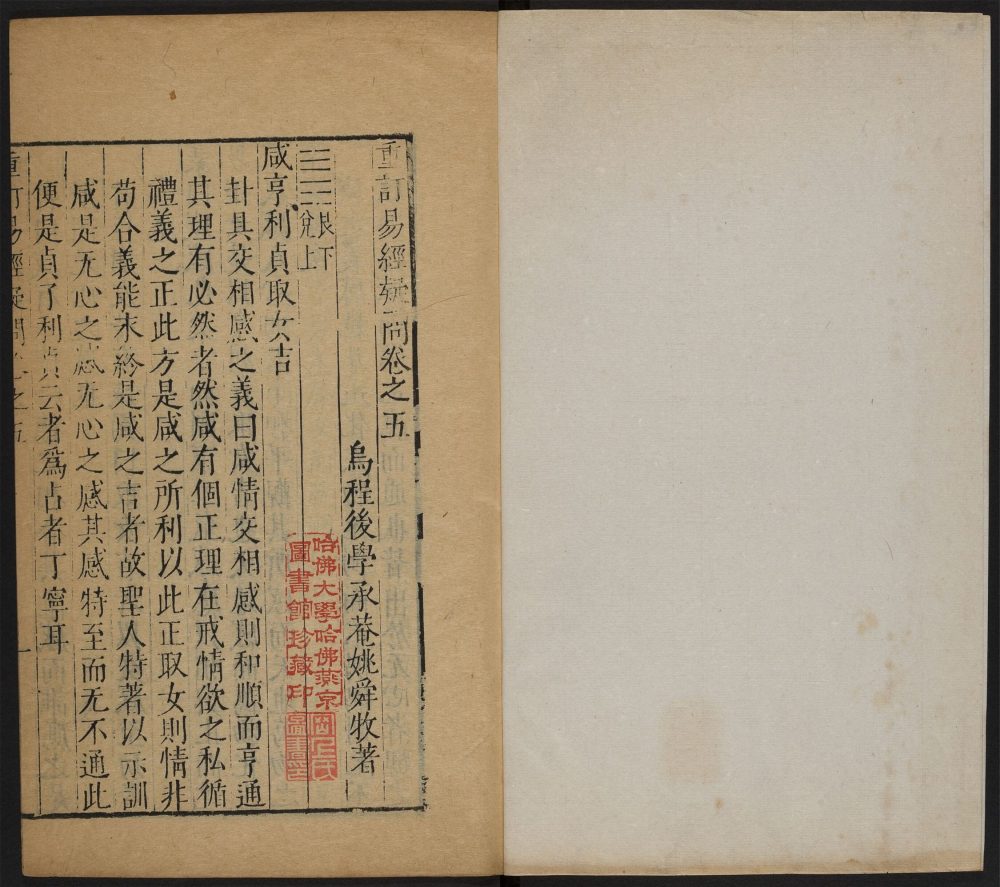 重訂易經疑問卷之五
烏程後學承菴姚舜牧著
艮下
兌上
咸亨利貞取女吉
卦具交相感之義曰咸情交相感則和順而亨通
其理有必然者然咸有個正理在戒情欲之私循
禮義之正此方是咸之所利以此正取女則情非
苟合義能末終是咸之吉者故聖人特著以示訓
咸是无心之感无心之感其感特至而无不通此
便是貞了利貞云者為占者丁寧耳
重訂易經疑問卷之五
一
哈佛大學哈佛燕京
圖書館珍藏印